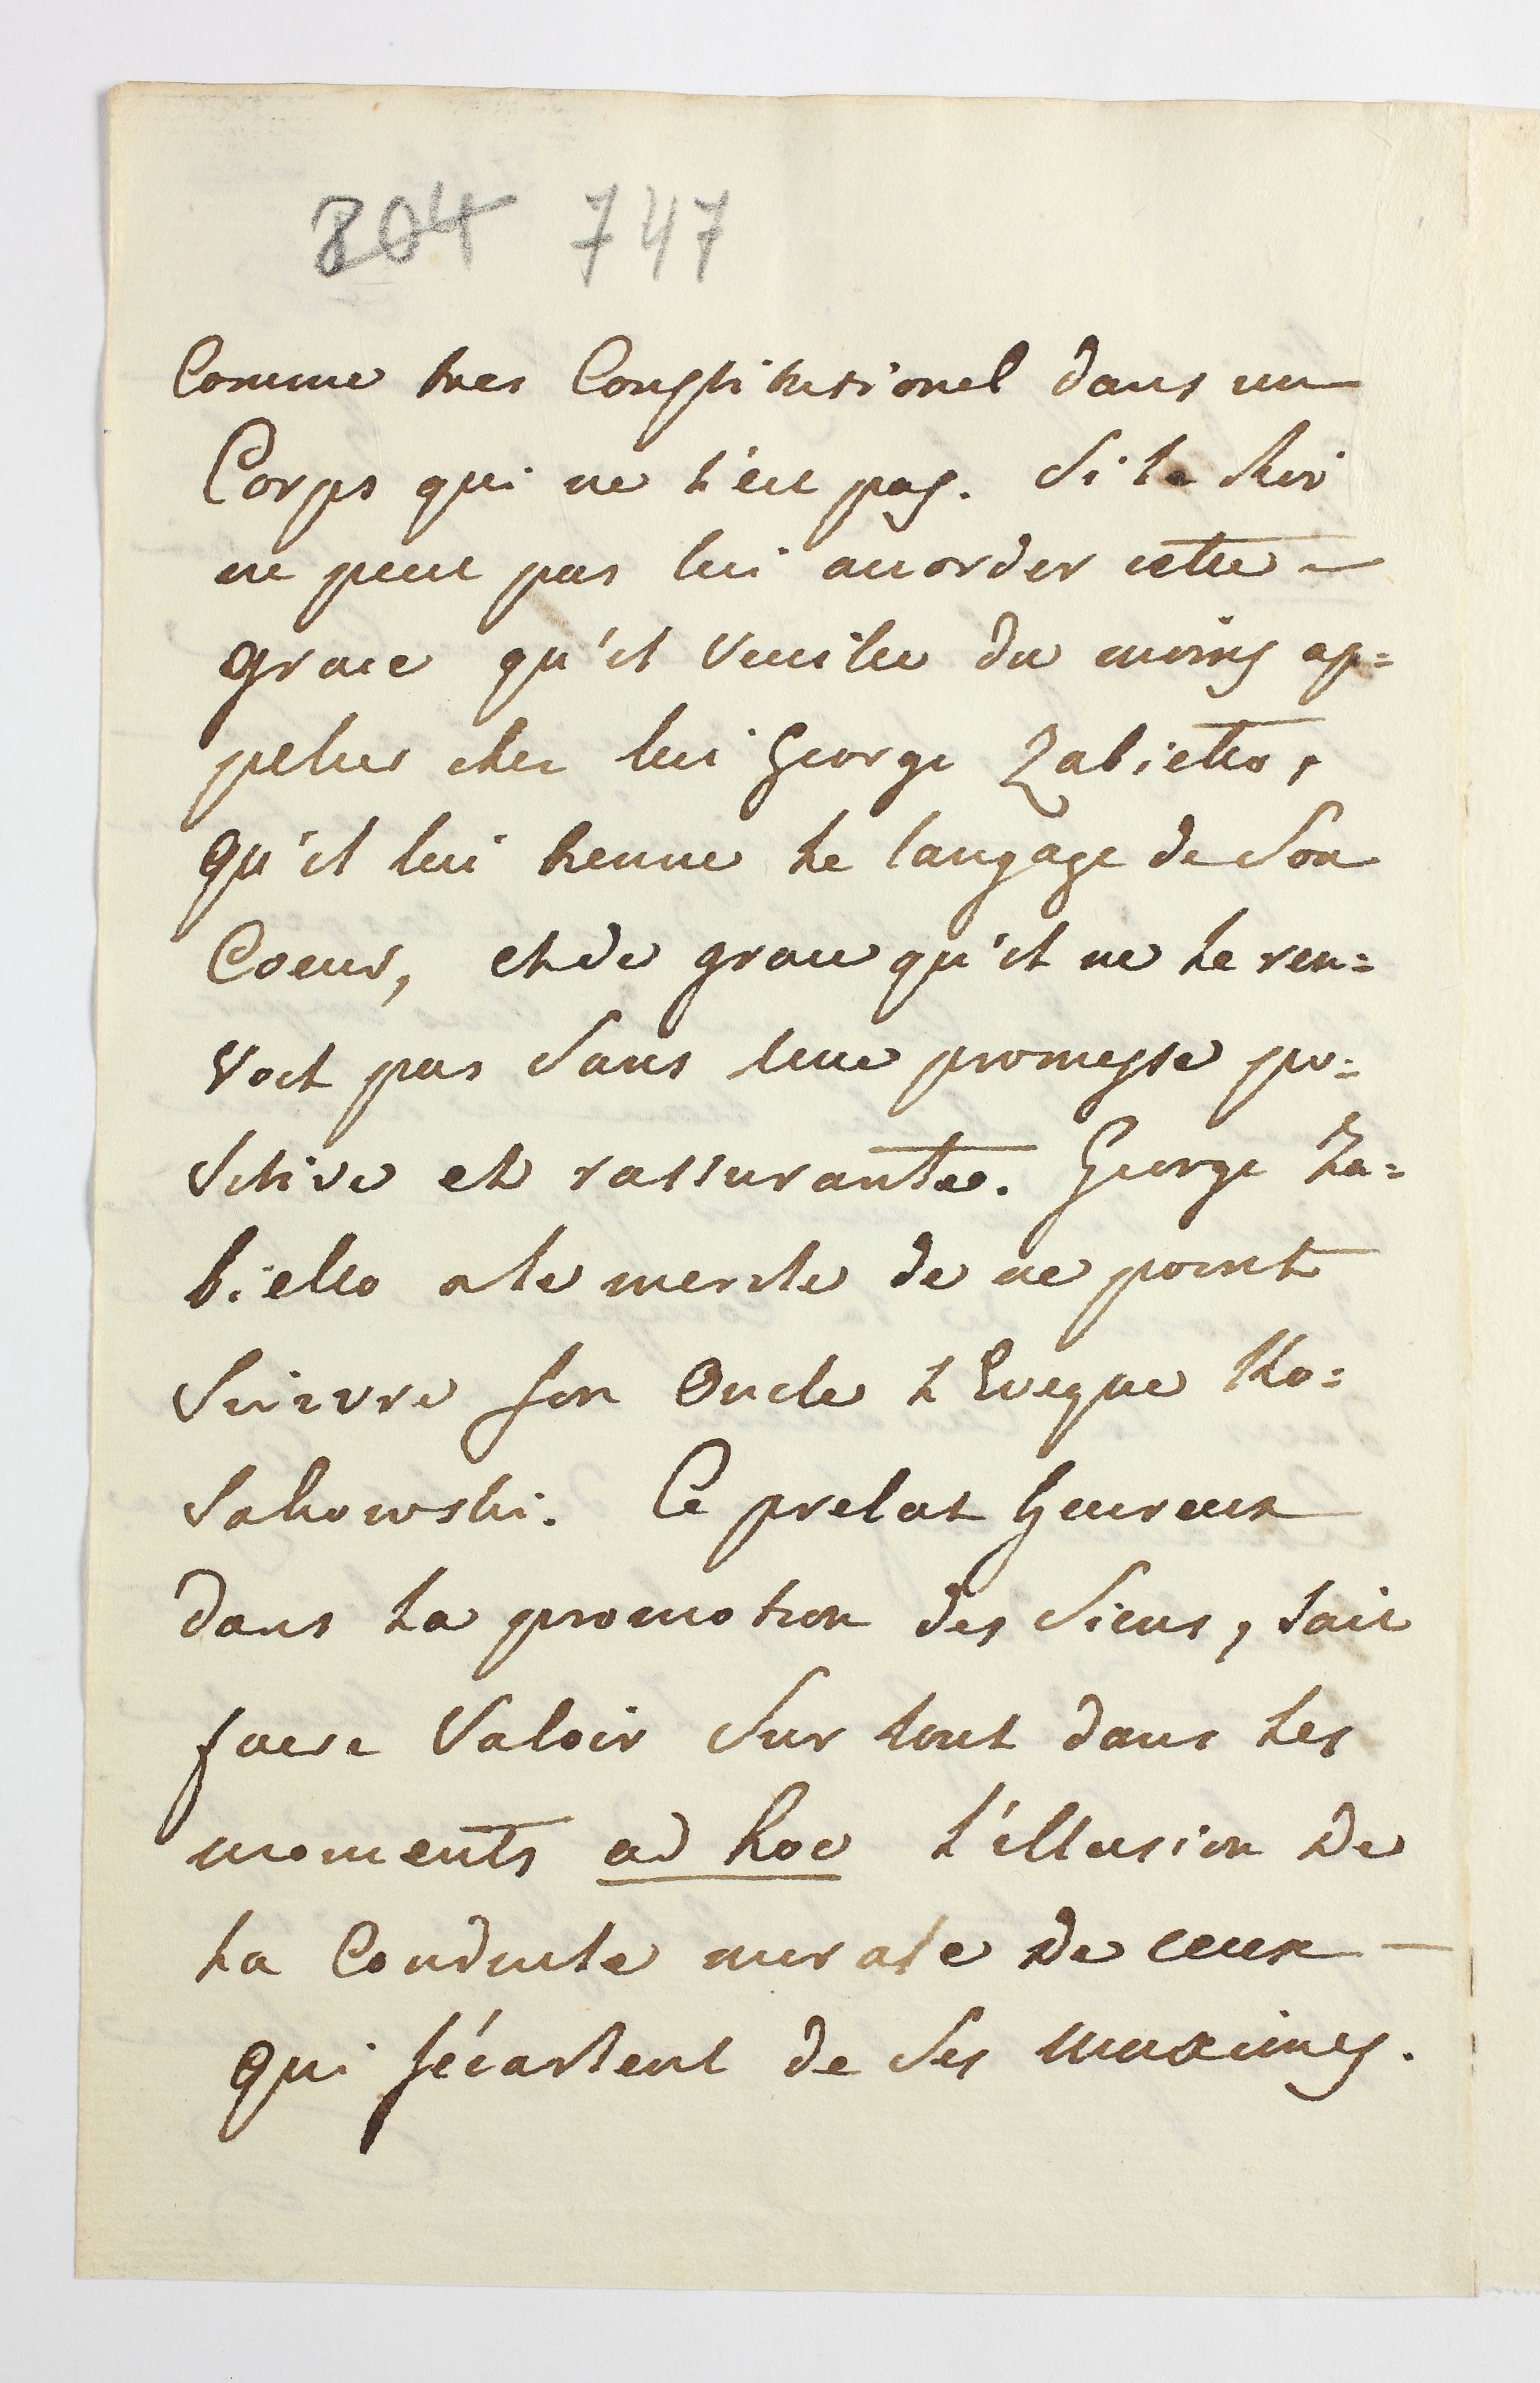 804 747
Comme tres Constitutionel dans un
Corps qui ne l'est pas. Si le Roi
ne peut pas lui accorder cette
grace qu'il veuille du moins ap=
peller chez lui George Zabiello,
qu'il lui tienne le langage de Son
Coeur, et de grace qu'il ne le ren=
voit pas Sans une promesse po=
sitive et rassurante. George Za=
biello a le merite de ne point
Suivre son Oncle l'Eveque Ko=
sakowski. Ce prelat heureux
dans la promotion des Siens, sait
faire Valoir Sur tout dans les
moments ad hoc l'illusion de
la Conduite morale de ceux
qui s'écartent de Ses maximes.